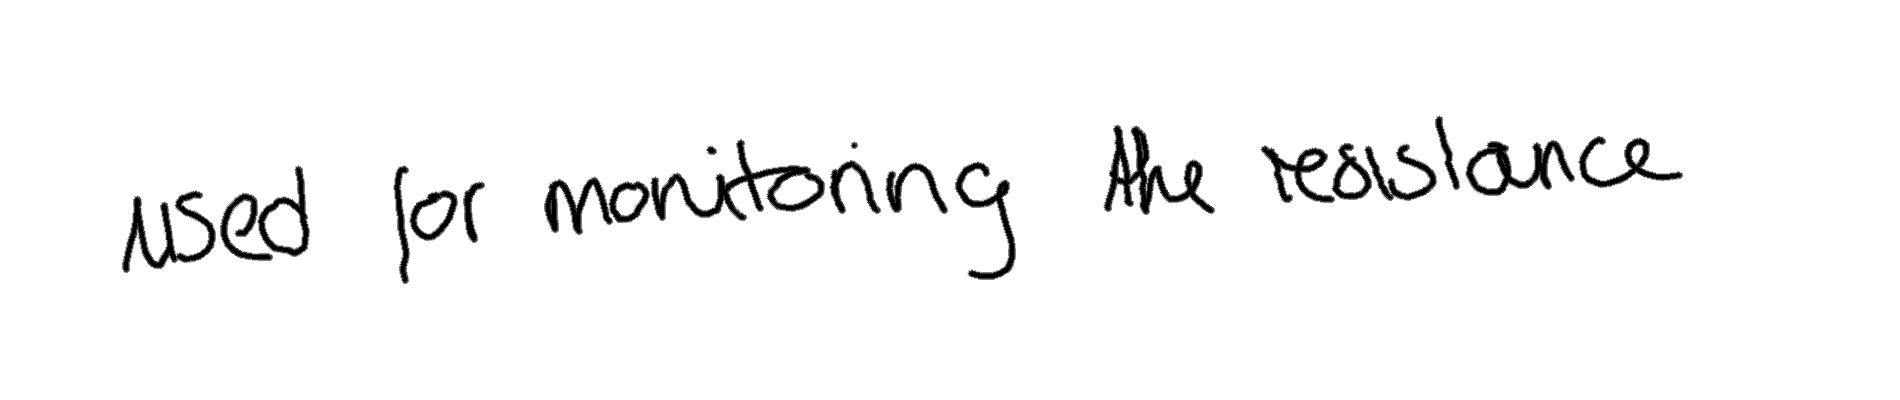 used for monitoring the resistance